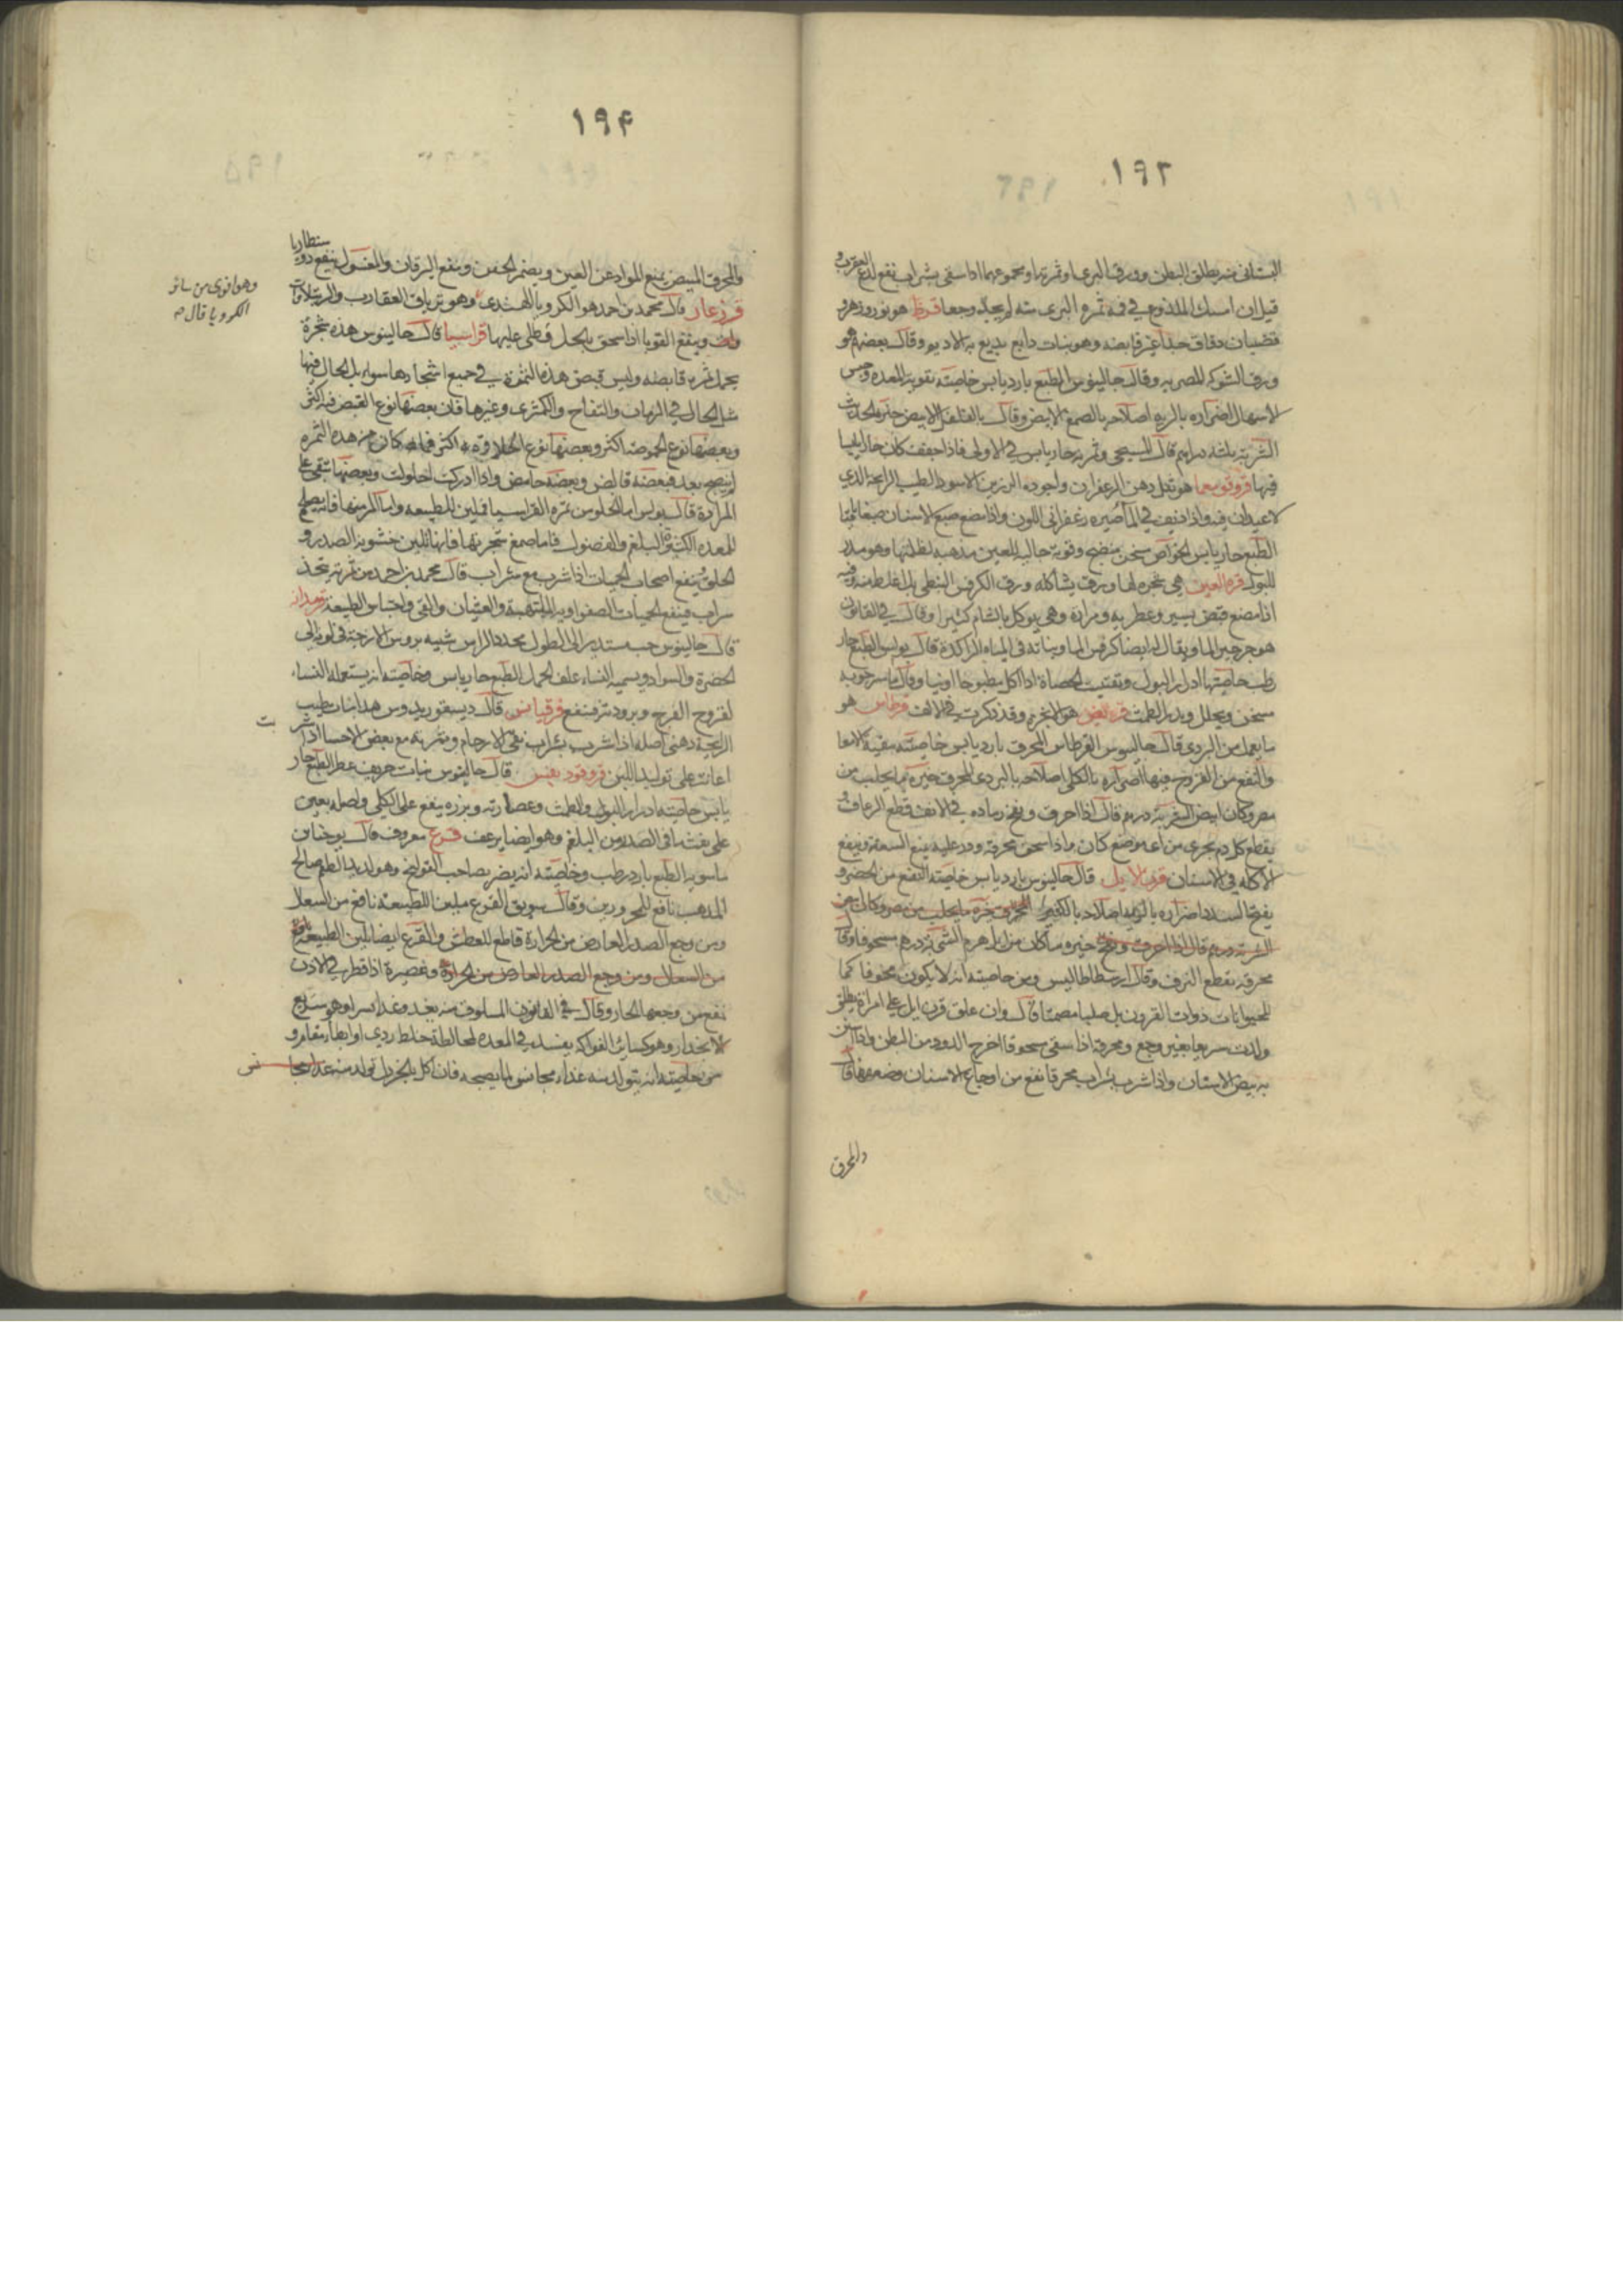 ١٩٣
البستانى منه يطلق البطن وورق البرى او ثمرتها ومجموعهما اذا سقى بشراب نفع لدغ العقرب و
قيل ان امسك الملذوع في فمه ثمره البرى منه لم يجد وجعا قرظ هو نور وزهر و
قضبان دقاق جدا غير قابضه وهو نبات دابغ يدبغ به الاديم وقال بعضهم هو
ورق الشوكه المصريه وقال جالينوس الطبع بارد يابس خاصيته تقويه المعده وحبس
الاسهال اضراره بالريه اصلاحه بالصمغ الابيض وقال بالفلفل الابيض خيره الحديث
الشربة ثلثه دراهم قال المسيحى وثمرته حار يابس في الاولى فاذا جففت كان حاليا
فيها قروقومعما هو ثفل دهن الزعفران واجوده الرزين الاسود الطيب الرايحة الذي
لا عيدان فيه واذا ديف في الماء صيره زعفرانى اللون واذا مضغ صبغ الاسنان صبغا باقيا
الطبع حار يابس الخواص مسخن منضج وقوته جاليه للعين مذهبه لظلمتها وهو مدر
للبول قرة العين هي شجره لها ورق يشاكله ورق الكرفس النبطى بل اغلظ منه وفيه
اذا مضغ قبض يسير وعطريه ومرارة وهي يوكل بالشام كثيرا وقال في القانون
هو جرجير الماء ويقال له ايضا كرفس الماء ونباته في المياه الراكدة قال بولس الطبع حار
رطب خاصيتها ادرار البول وتفتيت الحصاة اذا اكل مطبوخا اونيا وقال ماسرجويه
مسخن ويحلل ويدر الطمث قريض هو الانجره وقد ذكرت في الالف قرطاس هو
ما يعمل من البردى قال جالينوس القرطاس المحرق بارد يابس خاصيته تنقية الامعا
والنفع من القروح فيها اضراره بالكلى اصلاحه بالبردى المحرق خيره ما يجلب من
مصر وكان ابيض الشربة درهم قال اذا احرق ونفخ رماده في الانف قطع الرعاف و
يقطع كل دم يجرى من اى موضع كان واذا سحق محرقه وذر عليه ينفع السعفة وينفع
الاكله في الاسنان قرن الايل قال جالينوس بارد يابس خاصيته النفع من الخضر و
يفتح السدد اضراره بالريه اصلاحه بالكثيرا المحرق خيره ما يجلب من مصر وكان ابيض
الشربة درهم قال اذا احرق ونفخ خيره ما كان من ايل هرم الشربة درهم مسحوقا وقال
محرقه يقطع النزف وقال ارسطاطاليس ومن خاصيته انه لا يكون مجوفا كما
للحيوانات ذوات القرون بل صلبا مصمتا قال وان علق قرن ايل على امراة يطلق
ولدت سريعا بغير وجع ومحرقه اذا سقى مسحوقا اخرج الدود من البطن واذا استن
به بيض الاسنان واذا شرب بشراب محرقا نفع من اوجاع الاسنان وضعفها قال
والمحرق
١٩۴
والمحرق المبيض يمنع المواد عن العين ويضمر الجفن وينفع اليرقان والمغسول ينفع دوسنطاريا
قردعار قال محمد بن احمد هو الكرويا الهندى وهو ترياق العقارب والرتيلاوات
وينفع القوبا اذا سحق بالخل وطلى عليها قراسيا قال جالينوس هذه شجرة
يحمل ثمره قابضه وليس قبض هذه الثمرة في جميع اشجارها سواء بل الحال فيها
مثل الحال في الرمان والتفاح والكمثرى وغيرها فان بعضها نوع القبض فيه اكثر
وبعضها نوع الحموضة اكثر وبعضها نوع الحلاوة اكثر فما كان من هذه الثمرة
لم ينضج بعد فبعضه قابض وبعضه حامض واذا ادركت احلولت وبعضها تبقى على
المرارة قال بولس اما الحلو من ثمره القراسيا فملين للطبيعه واما المر منها فانه يصلح
للمعده الكثيرة البلغم والفضول فاما صمغ شجرتها فانها تلين خشونه الصدر و
الحلق وينفع اصحاب الحميات اذا شرب مع شراب قال محمد بن احمد من ثمرته يتخذ
شراب فينفع الحميات الصفراويه الملتهبة والغثيان والقى واحتباس الطبيعة قردمانه
قال جالينوس حب مستدير الى الطول محدد الراس شبيه بروس الازجة في لونه الى
الخضرة والسواد ويسميه النساء علف الجمل الطبع حار يابس وخاصيته انه يستعمله النساء
لقروح الفرج وبرودته فتنفع قرقياس قال ديسقوريدوس هذا نبات طيب
الرايحة دهنى اصله اذا شرب بشراب نقى الارحام وشربته مع بعض الاحسا اذا شربت
اعانت على توليد اللبن قروقوديغيس قال جالينوس نبات حريف عطر الطبع حار
يابس خاصيته ادرار البول والطمث وعصارته وبزره ينفع على الكلى واصله يعين
على نفث ما في الصدر من البلغم وهو ايضا يرعف قرع معروف قال يوحنا بن
ماسويه الطبع بارد رطب وخاصيته انه يضر بصاحب القولنج وهو لذيذ الطعم صالح
المذهب نافع للمحرورين وقال سويق القرع ملين للطبيعة نافع من السعال
ومن وجع الصدر العارض من الحرارة قاطع للعطش والقرع ايضا تلين الطبيعة نافع
من السعال ومن وجع الصدر العارض من الحرارة وعصيره اذا قطر في الاذن
نفع من وجعها الحار وقال في القانون المسلوق منه يغذو غذاء يسيرا وهو سريع
الانحدار وهو كسائر الفواكه يفسد في المعده لمخالطة خلط ردى او ابطاء مقام و
من خاصيته انه يتولد منه غذاء مجانس لما يصحبه فان اكل بالخردل تولد منه غذاء
وهو اقوى من سائر
الكرويا قال صح